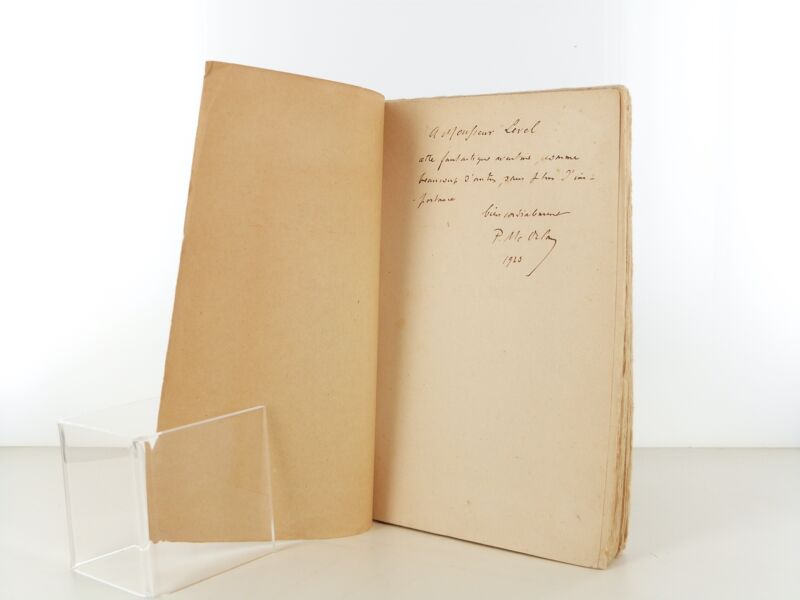 A Monsieur Level
cette fantastique aventure, comme
beaucoup d'autres, sans plus d'im-
portance
bien cordialement
P. Mc Orlan